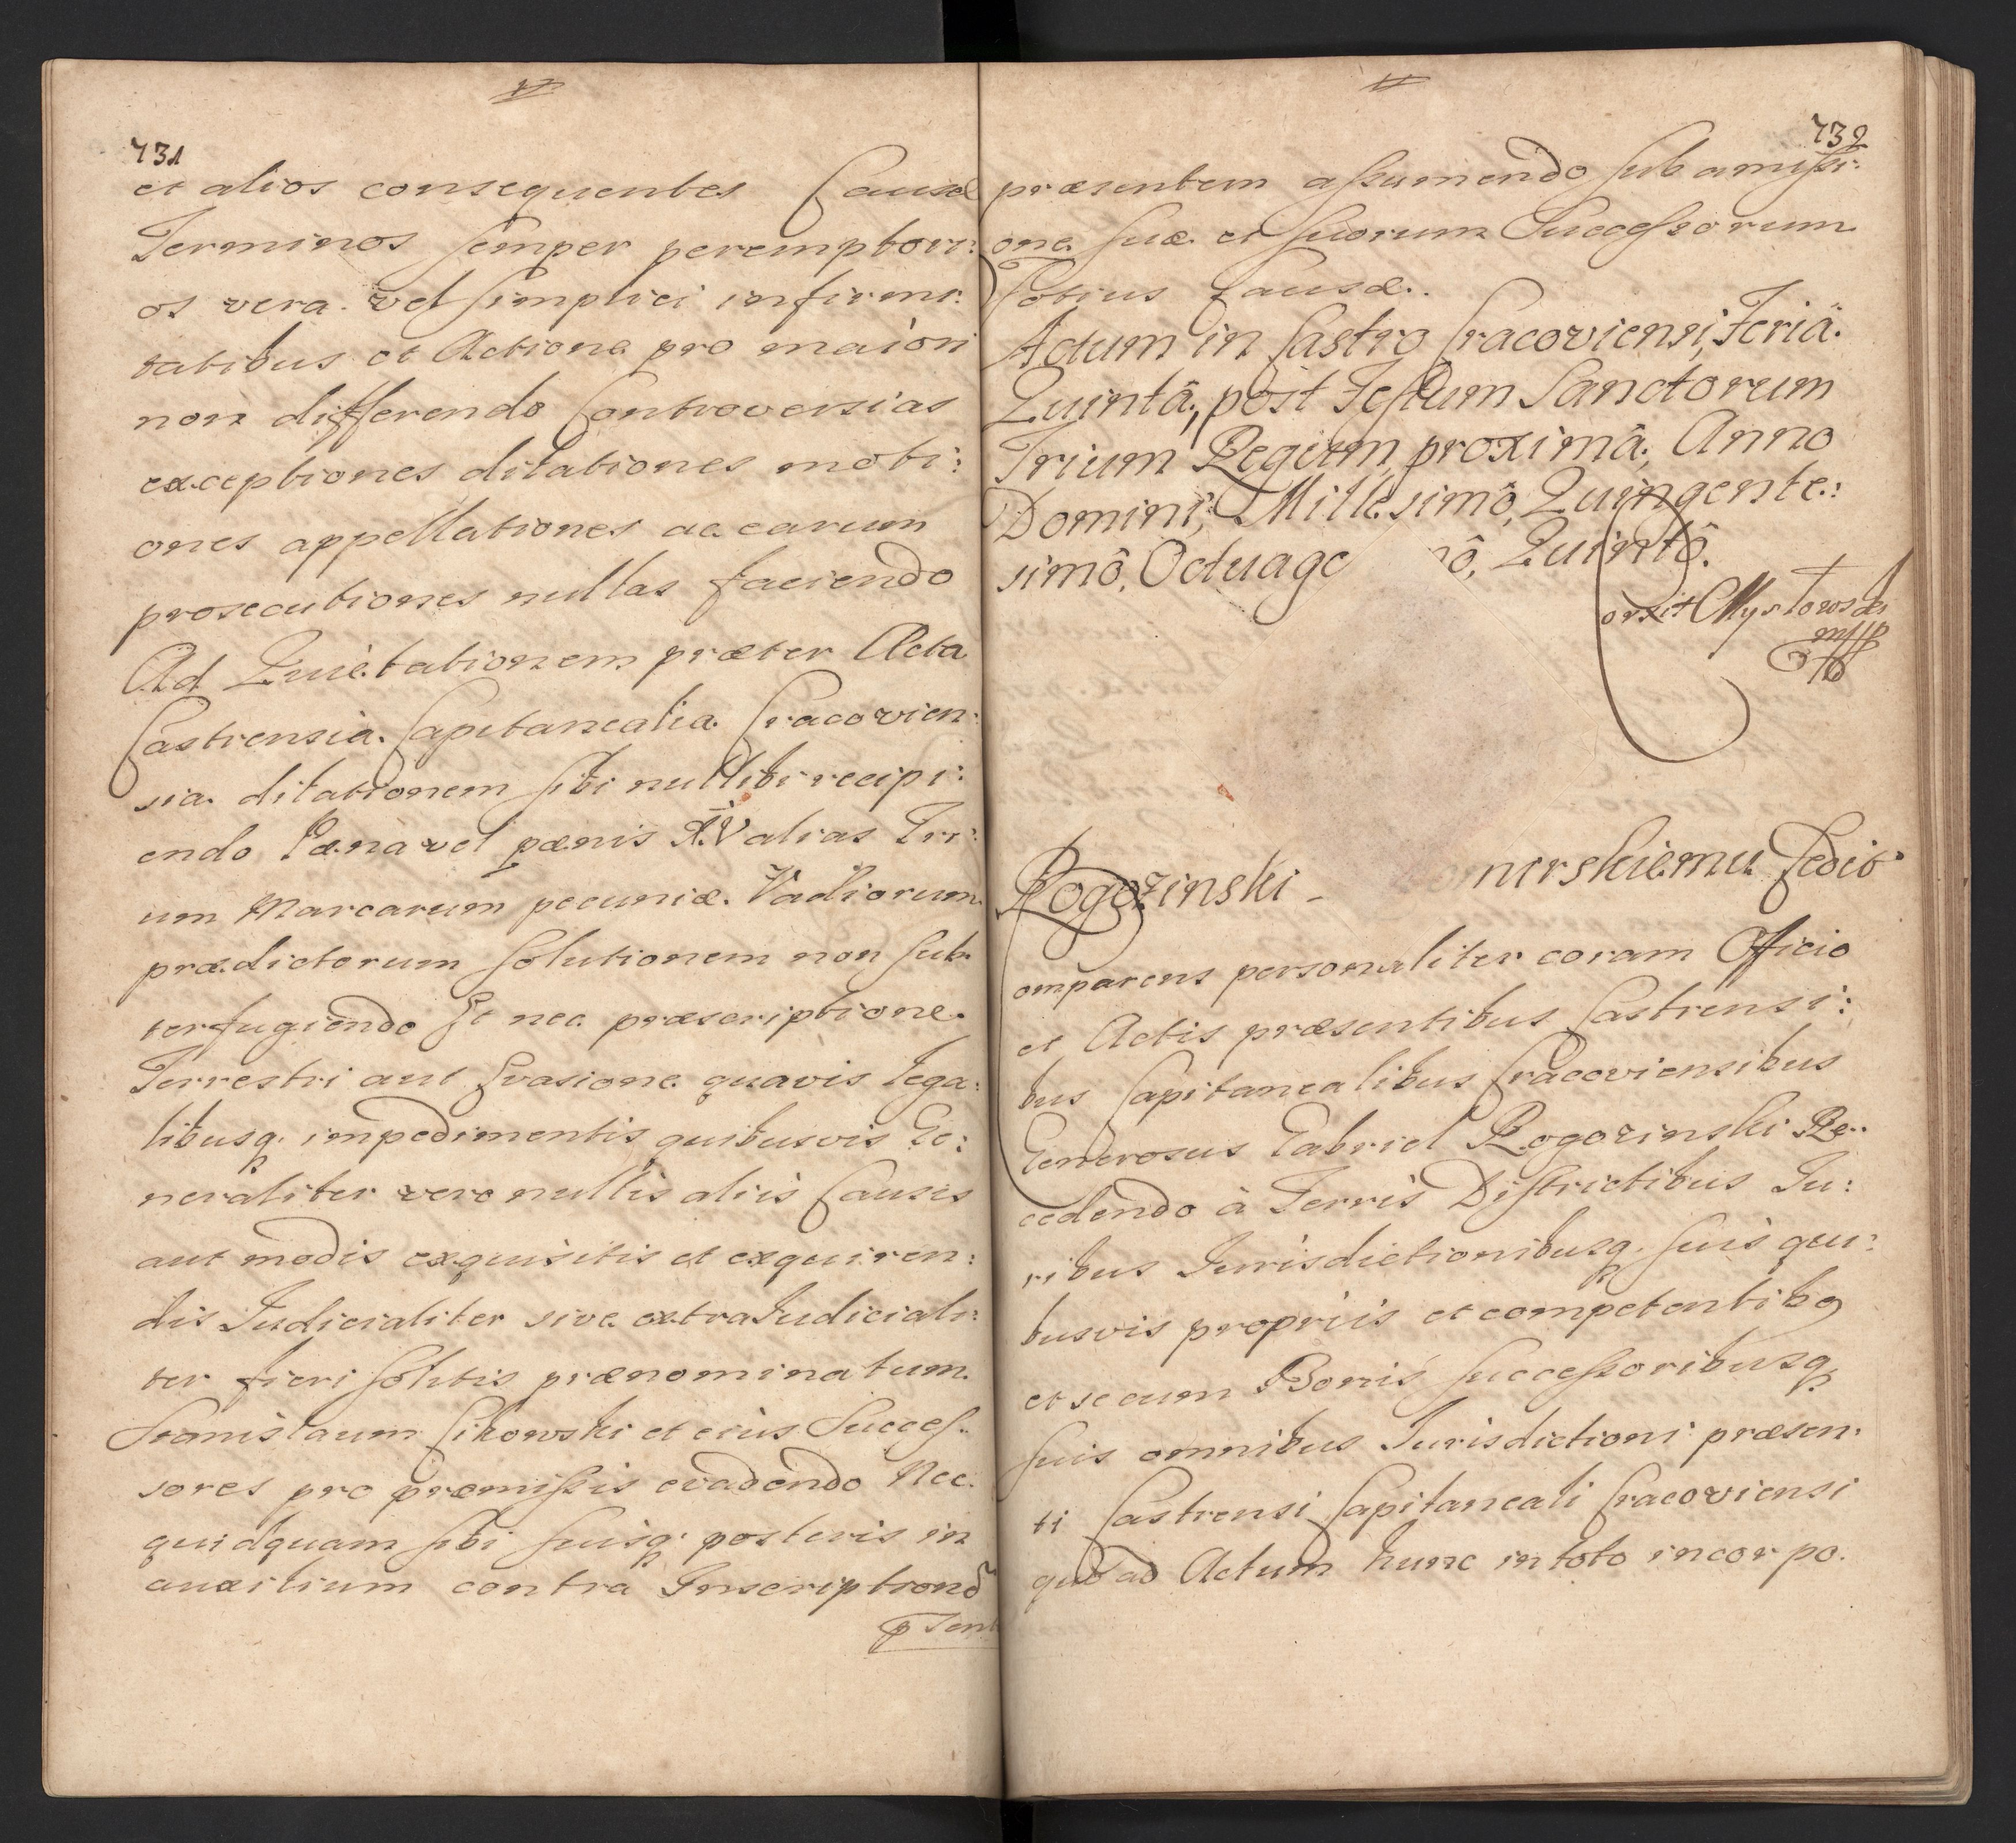 731
et alios consequentes Causæ
Terminos semper peremptori:
os vera vel simplici infirmi:
tatibus et Actione pro maiori
non differendo Controversias
exceptiones dilationes moti:
ones appellationes ac earum
prosecutiones nullas faciendo
Ad Quietationem præter Acta
Castrensia Capitanealia Cracovien:
sia dilationem sibi nullibi recipi:
endo Pæna vel pænis XIV alias Tri:
um Marcarum pecuniæ Vadiorum
prædictorum solutionem non sub
terfugiendo Et nec præscriptione
Terrestri aut Evasione quavis lega:
libusq. impedimentis quibusvis Ge:
neraliter vero nullis aliis Causis
aut modis exquisitis et exquiren:
dis Judicialiter sive extraJudiciali:
ter fieri solitis prænominatum
Stanislaum Cikowski et eius Succes:
sores pro præmissis evadendo Nec
quidquam sibi suisq. posteris in
auxilium contra Inscriptionẽ
732
præsentem assumendo sub amissi:
one suæ et suorum Successorum
Totius Causæ.
Actum in Castro Cracoviensi, Feriâ
Quintâ, post Festum Sanctorum
Trium Regum proximâ, Anno
Domini, Millesimô, Quingente:
simô, Octuage nô, Quintô.
Rogozinski - mirskiemu Cedit
omparens personaliter coram Officio
et Actis præsentibus Castrensi:
bus Capitanealibus Cracoviensibus
Generosus Gabriel Rogozinski Re:
cedendo à Terris Districtibus Ju:
ribus Jurisdictionibusq. suis qui:
busvis propriis et competentibq
et se cum Bonis successoribusq
suis omnibus Jurisdictioni præsen:
ti Castrensi Capitaneali Cracoviensi
quo ad Actum hunc in toto incorpo.